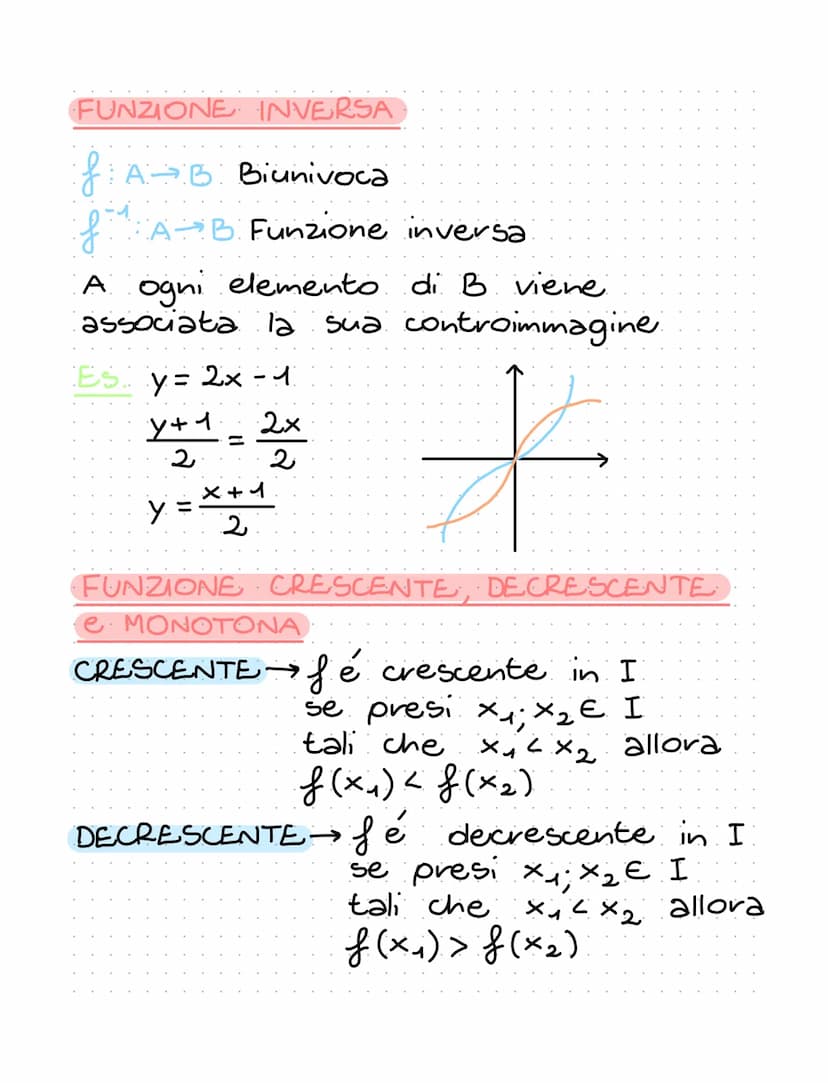 FUNZIONE INVERSA
f: A→B Biunivoca
f⁻¹: A→B Funzione inversa
A ogni elemento di B viene
associata la sua controimmagine
Es: y = 2x - 1
(y+1)/2 = 2x/2
y = (x+1)/2
FUNZIONE CRESCENTE, DECRESCENTE
e MONOTONA
CRESCENTE → f é crescente in I
se presi x₁; x₂ ∈ I
tali che x₁ < x₂ allora
f(x₁) < f(x₂)
DECRESCENTE → f é decrescente in I
se presi x₁; x₂ ∈ I
tali che x₁ < x₂ allora
f(x₁) > f(x₂)